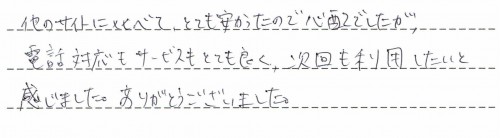 他のサイトに比べて、とても安かったので心配でしたが、
電話対応もサービスもとても良く、次回も利用したいと
感じました。ありがとうございました。